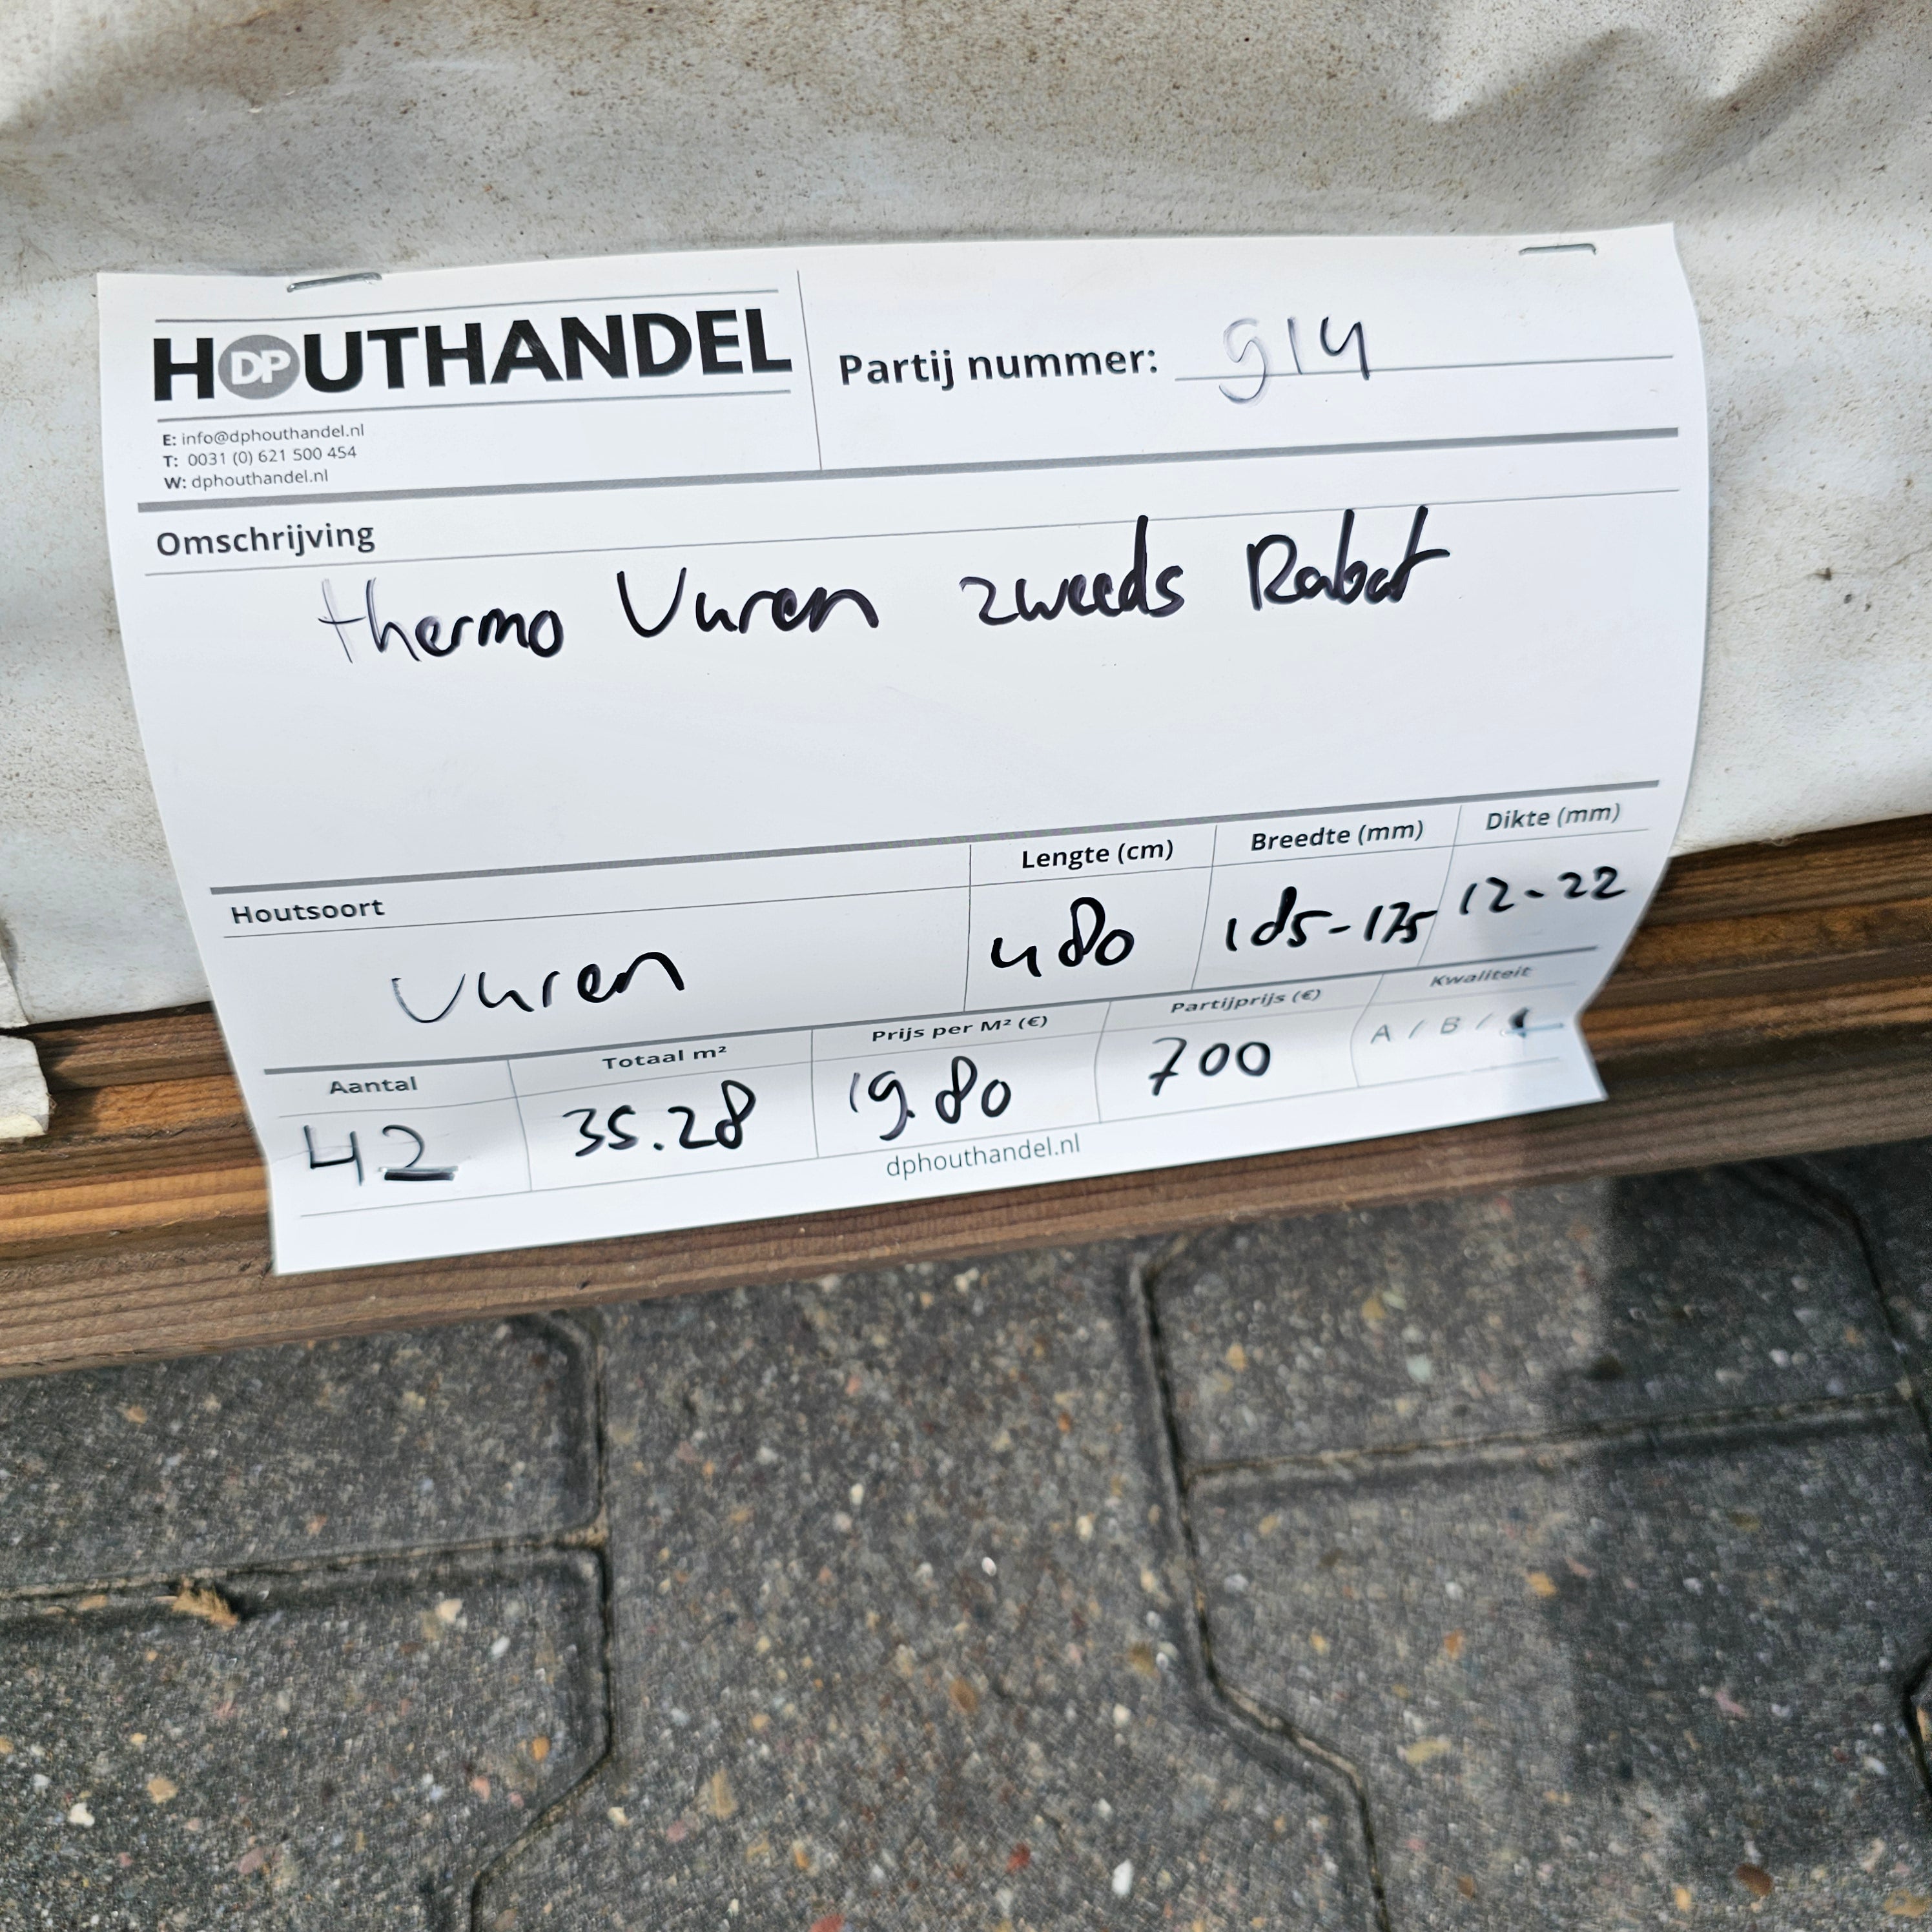 HOUTHANDEL
DP
E: info@dphouthandel.nl
T: 0031 (0) 621 500 454
W: dphouthandel.nl
Partij nummer: 914
Omschrijving
thermo Vuren zweeds Rabat
Houtsoort
Vuren
Lengte (cm)
480
Breedte (mm)
185-175
Dikte (mm)
12-22
Aantal
42
Totaal m²
35.28
Prijs per M² (€)
19.80
Partijprijs (€)
700
Kwaliteit
A / B /
dphouthandel.nl